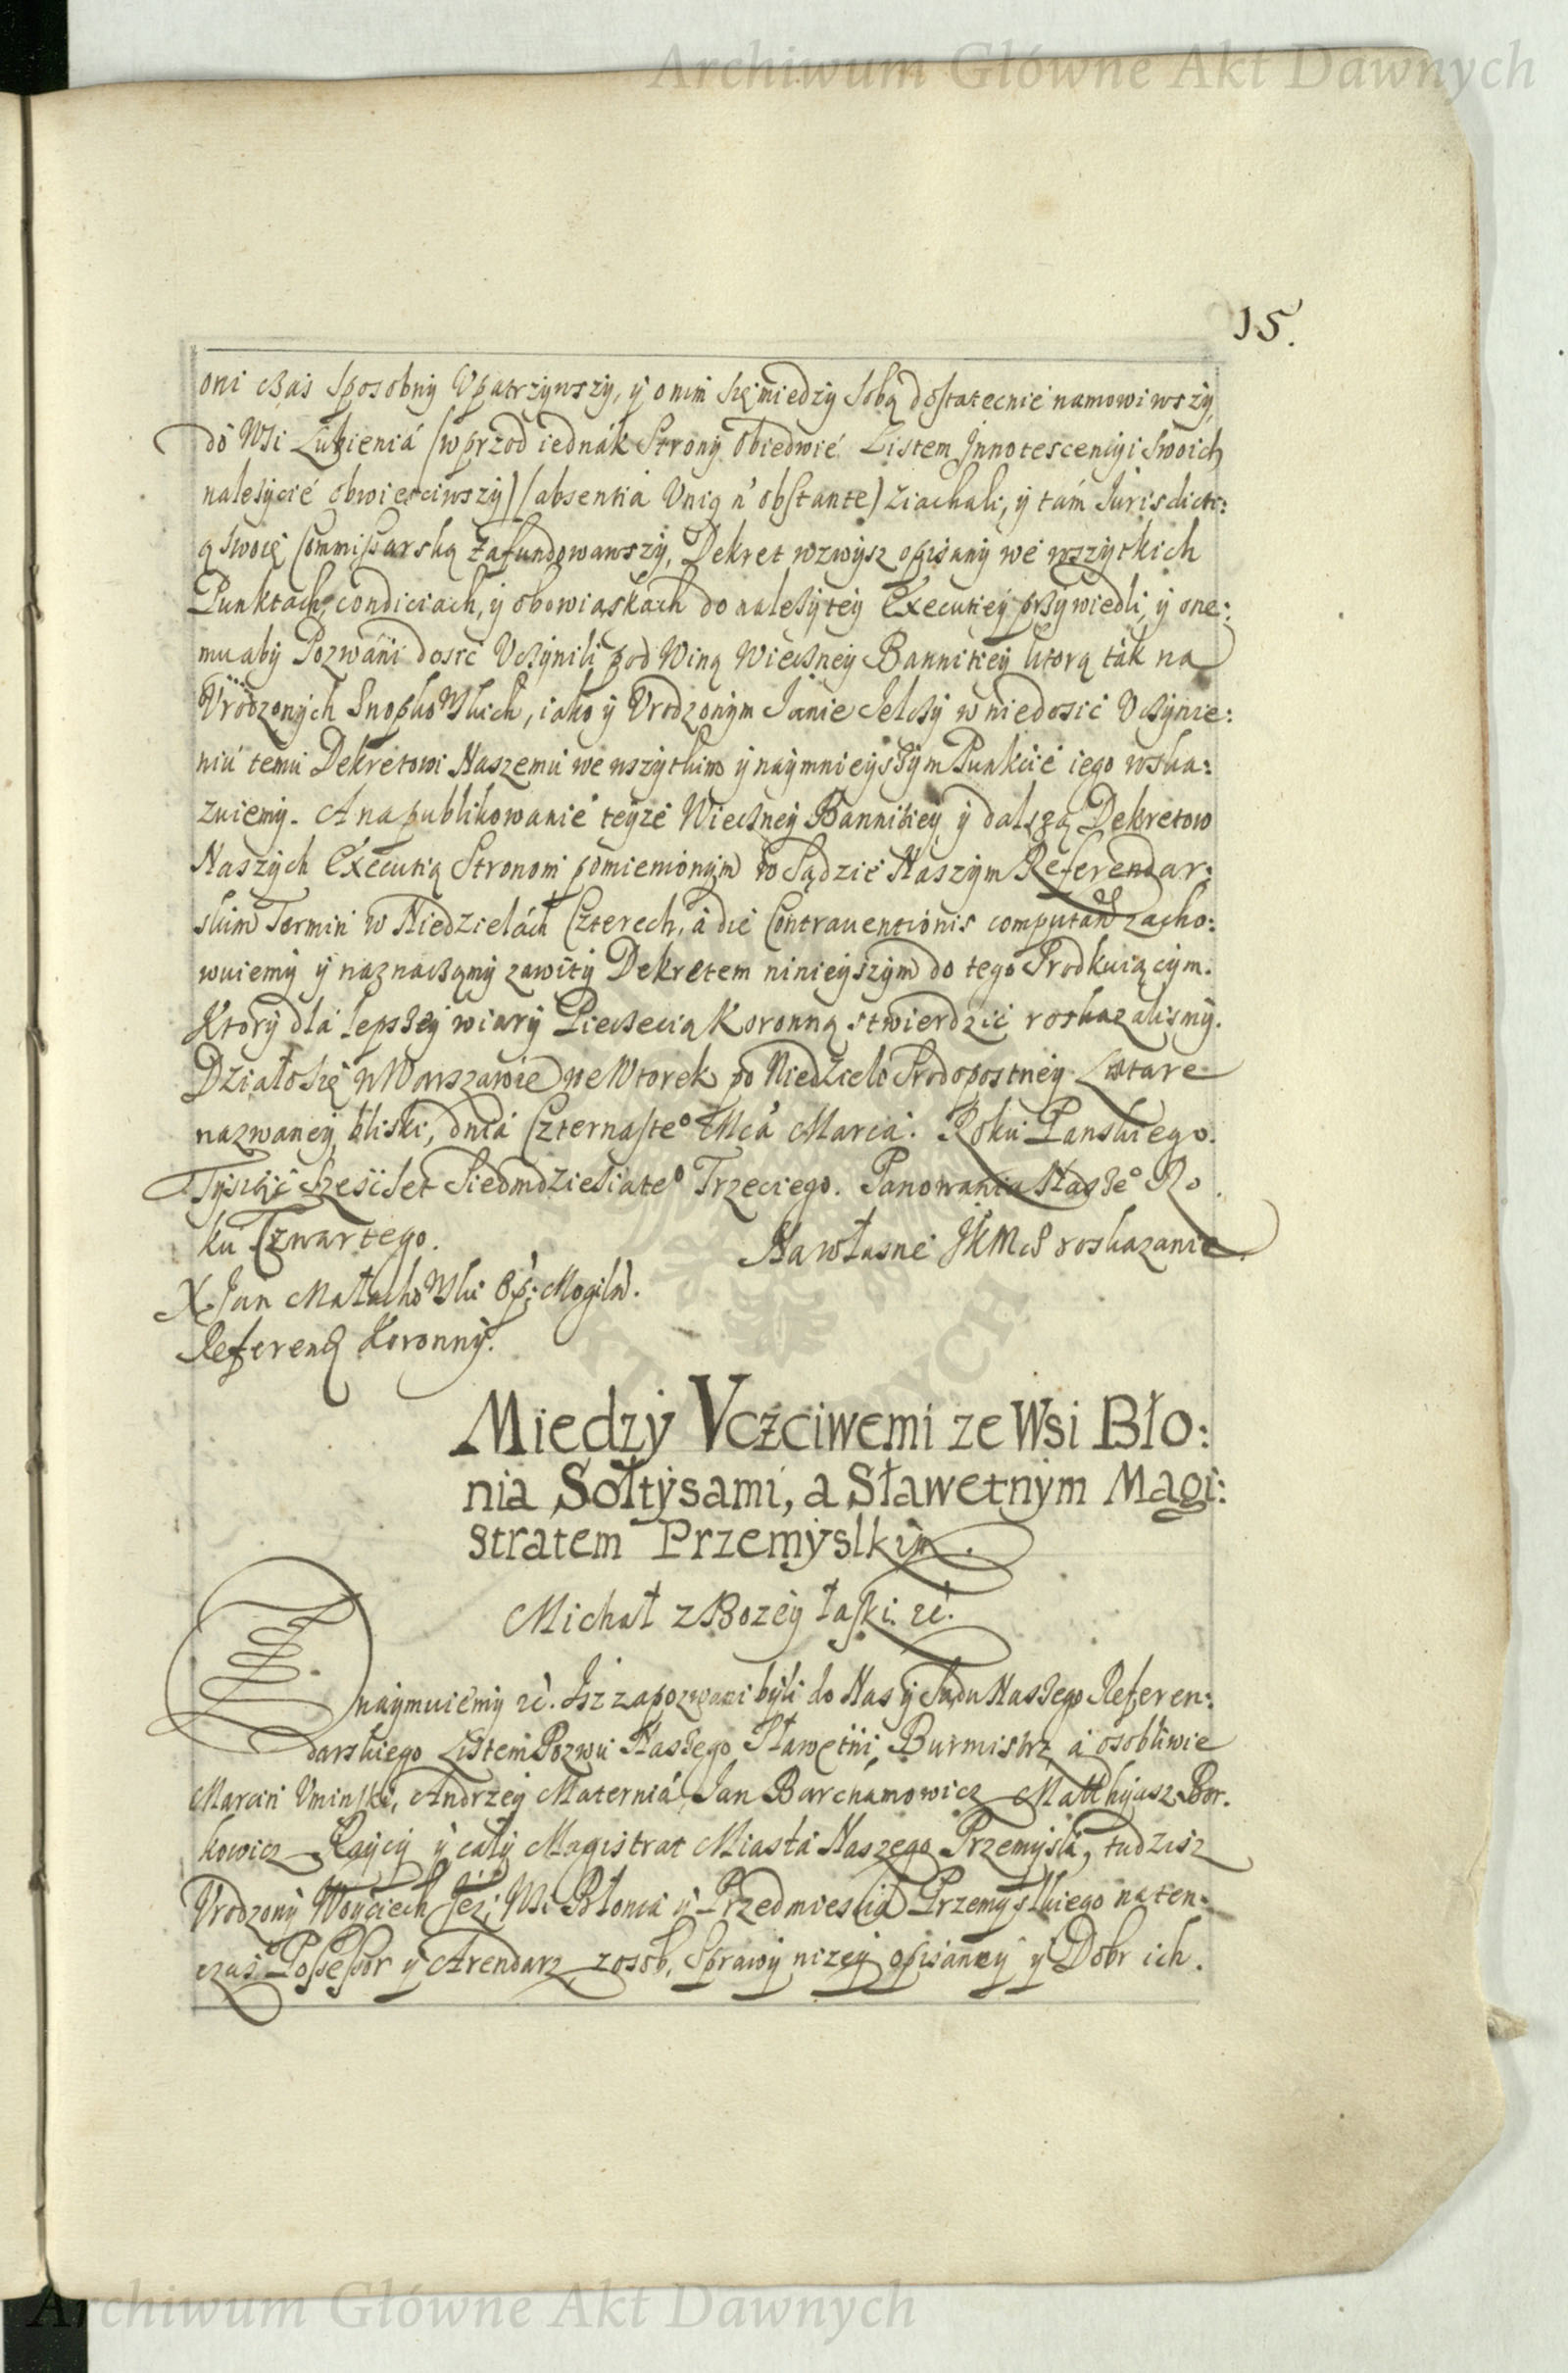 Archiwum Główne Akt Dawnych
15.
oni czas sposobny Upatrzywszy, y onim się miedzy sobą dostatecznie namowiwszy,
do Wsi Lubienia (wprzod iednák Strony obiedwie Listem Innotescencyi swoich
należycie obwiesciwszy) (absentia Vnią n' obstante) ziachali, y tám Jurisdicti:
ą swoię Commissarską zafundowawszy, Dekret wzwysz opisany we wszytkich
Punktach, condiciach, y obowiąskach do należytey Executiey przywiedli, y one:
mu aby Pozwáni dosić Vczynili pod Winą Wieczney Bannitiey ktorą ták na
Vrodzonych SnopkoWskich, iako y Vrodzonym Janie Jelczy w niedosić Vczynie:
niu temu Dekretowi Naszemu we wszytkim y naymnieyszym Punkcie iego wska:
zuiemy. A na publikowanie teyże Wieczney Bannitiey y dalszą Dekretow
Naszych Executią Stronom pomienionym w Sądzie Naszym Referendar:
skim Termin w Niedzielách Czterech, á die Contrauentionis computañ zacho:
wuiemy y naznaczamy zawity Dekretem ninieyszym do tego Prodkuiącym.
Ktory dla lepszey wiary Pieczęcią Koronną stwierdzić roskazalismy.
Działo się w Warszawie we Wtorek po Niedzieli Srodopostney Lætare
nazwaney bliski, dnia Czternaste° Mcá Marca. Roku Panskiego.
Tysiąc Szescset Siedmdziesiate° Trzeciego. Panowania Nasze° Ro
ku Czwartego.
Na własne JKMci roskazanie
X Jan MałachoWski Op: Mogiln.
Referend Koronny.
Miedzy Vczciwemi ze Wsi Bło:
nia Sołtysami, a Sławetnym Magi:
stratem Przemyslkim.
Michał z Bozey łaski: etc.
Znaymuiemy etc. Isz zapozwani byli do Nas y Sądu Naszego Referen:
darskiego Listem Pozwu Naszego Sławetni, Burmistrz á osobliwie
Marcin Vminski, Andrzey Maternia, Jan Barchamowicz Matthyasz Bor.
kowicz Raycy y cały Magistrat Miasta Naszego Przemysla, tudzisz
Vrodzony Woyciech Jeż; Wsi Błonia y Przedmiescia Przemyslkiego na ten:
czas Possessor y Arendarz z osob, Sprawy nizey opisaney y Dobr ich.
Archiwum Główne Akt Dawnych